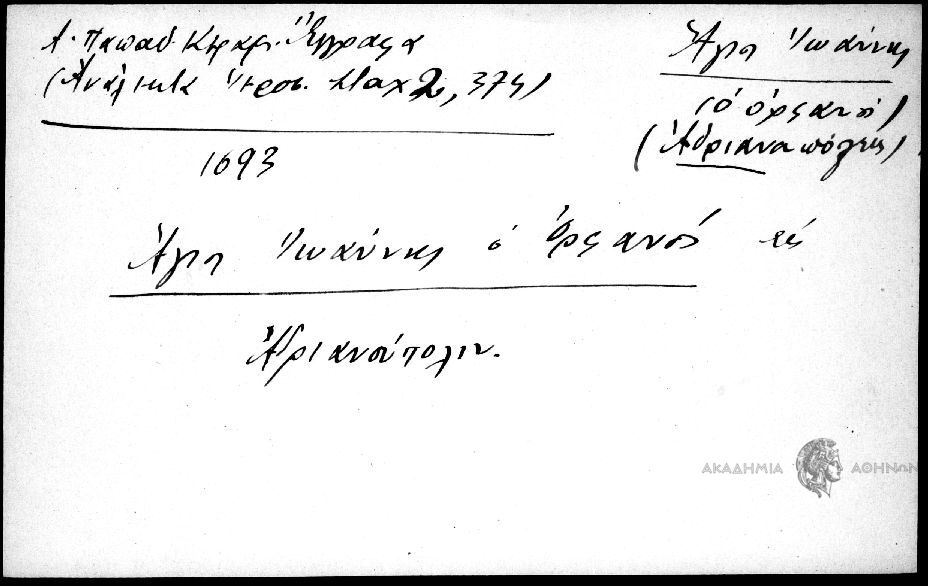 Α. Παπαδ. Κεραμ. Έγγραφα
(Ανάλεκτα Ιεροσ. Σταχ 2, 375)
Άγιος Ιωάννης
(ο ορφανός)
(Αδριανουπόλεως)
1693
Άγιος Ιωάννης ο Ορφανός εις
Αδριανούπολιν.
ΑΚΑΔΗΜΙΑ ΑΘΗΝΩΝ